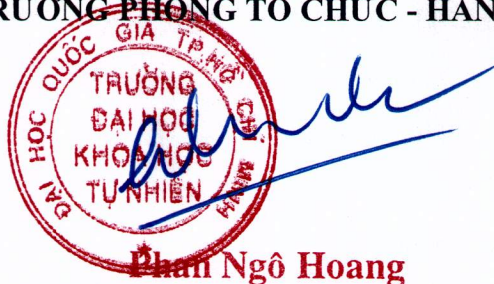 RƯỞNG PHÒNG TỔ CHỨC - HÀN
ĐẠI HỌC QUỐC GIA TP.HỒ CHÍ MINH
TRƯỜNG
ĐẠI HỌC
KHOA HỌC
TỰ NHIÊN
Phan Ngô Hoang